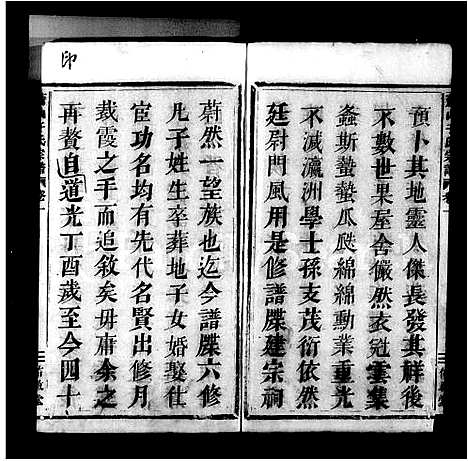 預卜其地靈人傑長發其祥後
不數世果屋舍儼然衣冠雲集
螽斯蟄蟄瓜瓞綿綿勳業重光
不減瀛洲學士孫支茂衍依然
廷尉門風用是修譜牒建宗祠
蔚然一望族也迄今譜牒六修
凡子姓生卒葬地子女婚娶仕
宦功名均有先代名賢出修月
裁霞之手而追敘矣毋庸余之
再贅自道光丁酉歲至今四十
印